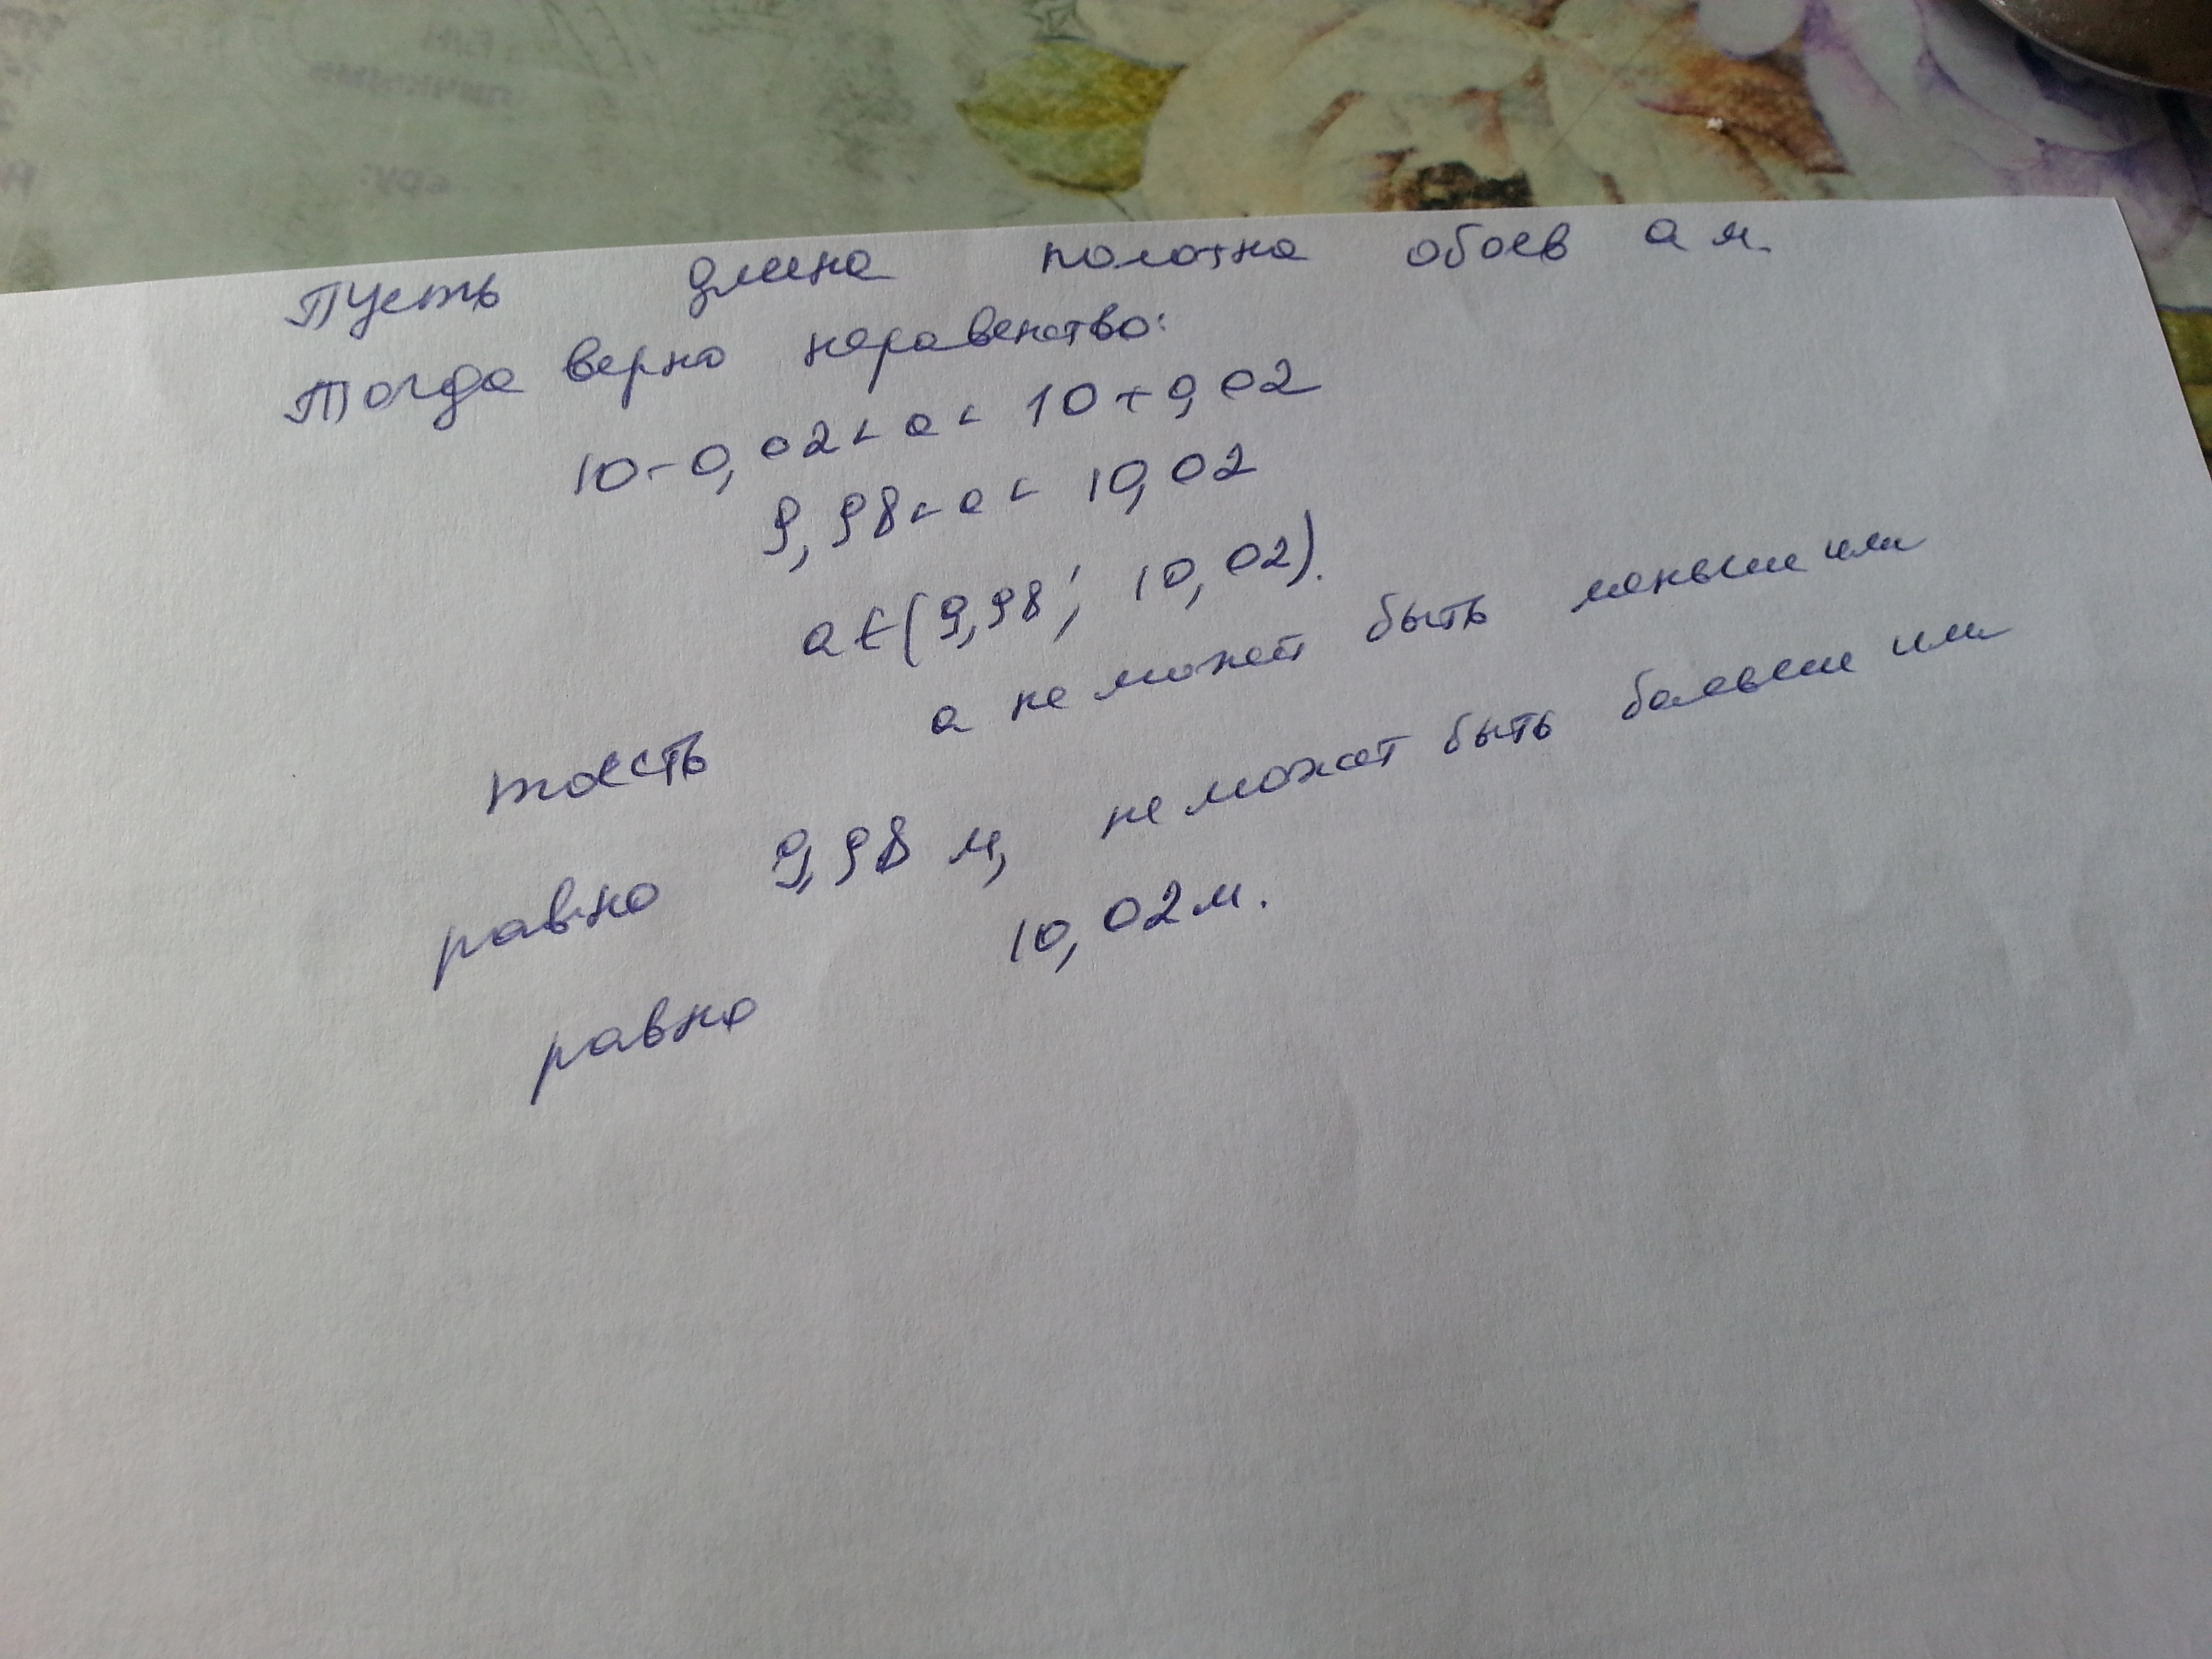 Пусть длина полотна обоев а м.
Тогда верно неравенство:
10-0,02<а<10+0,02
9,98<а<10,02
а∈(9,98; 10,02).
тоесть а не может быть меньше или
равно 9,98 м, не может быть больше или
равно 10,02 м.